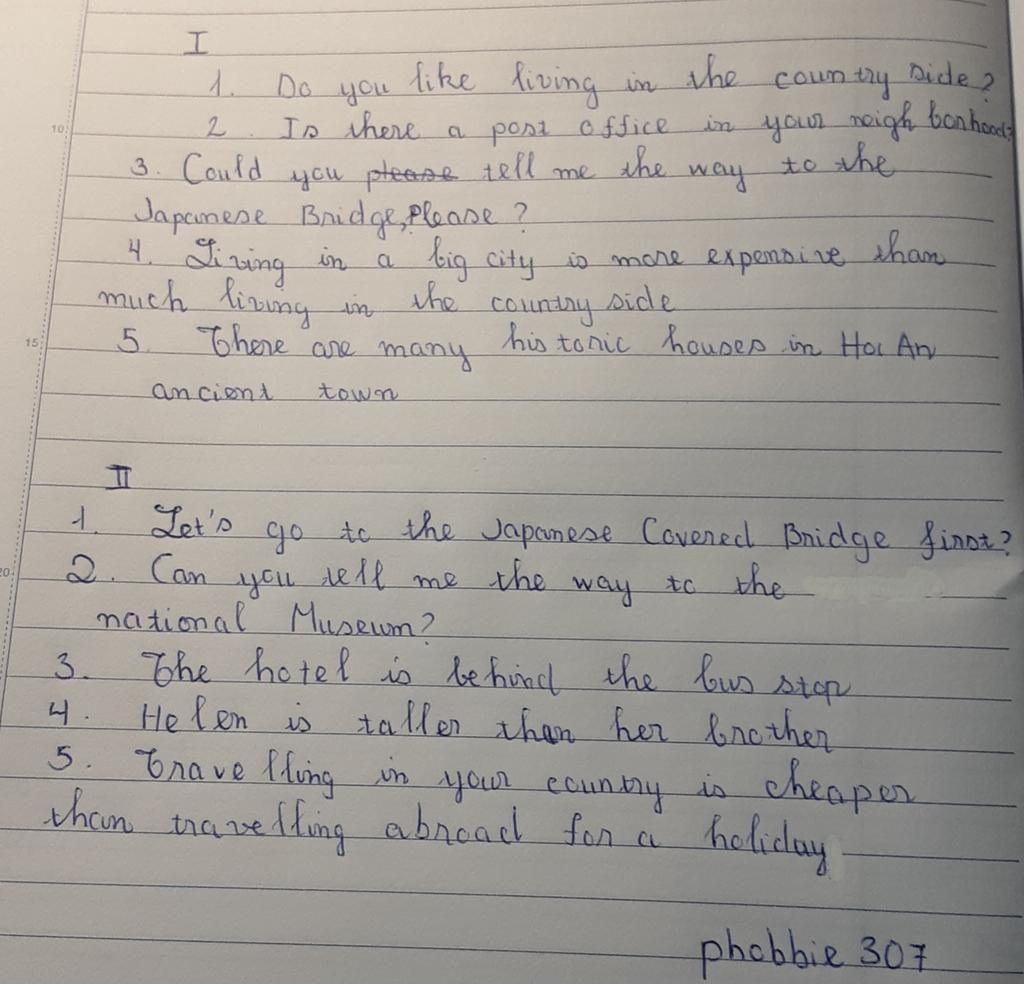 I
1. Do you like living in the country side?
2. Is there a post office in your neigh borhood?
10
3. Could you please tell me the way to the
Japanese Bridge, Please?
4. Living in a big city is more expensive than
much living in the country side
15
5. There are many historic houses in Hoi An
ancient town
II
1. Let's go to the Japanese Covered Bridge first?
20
2. Can you tell me the way to the
national Museum?
3. The hotel is behind the bus stop
4. Helen is taller than her brother
5. Travelling in your country is cheaper
than travelling abroad for a holiday
phobbie 307